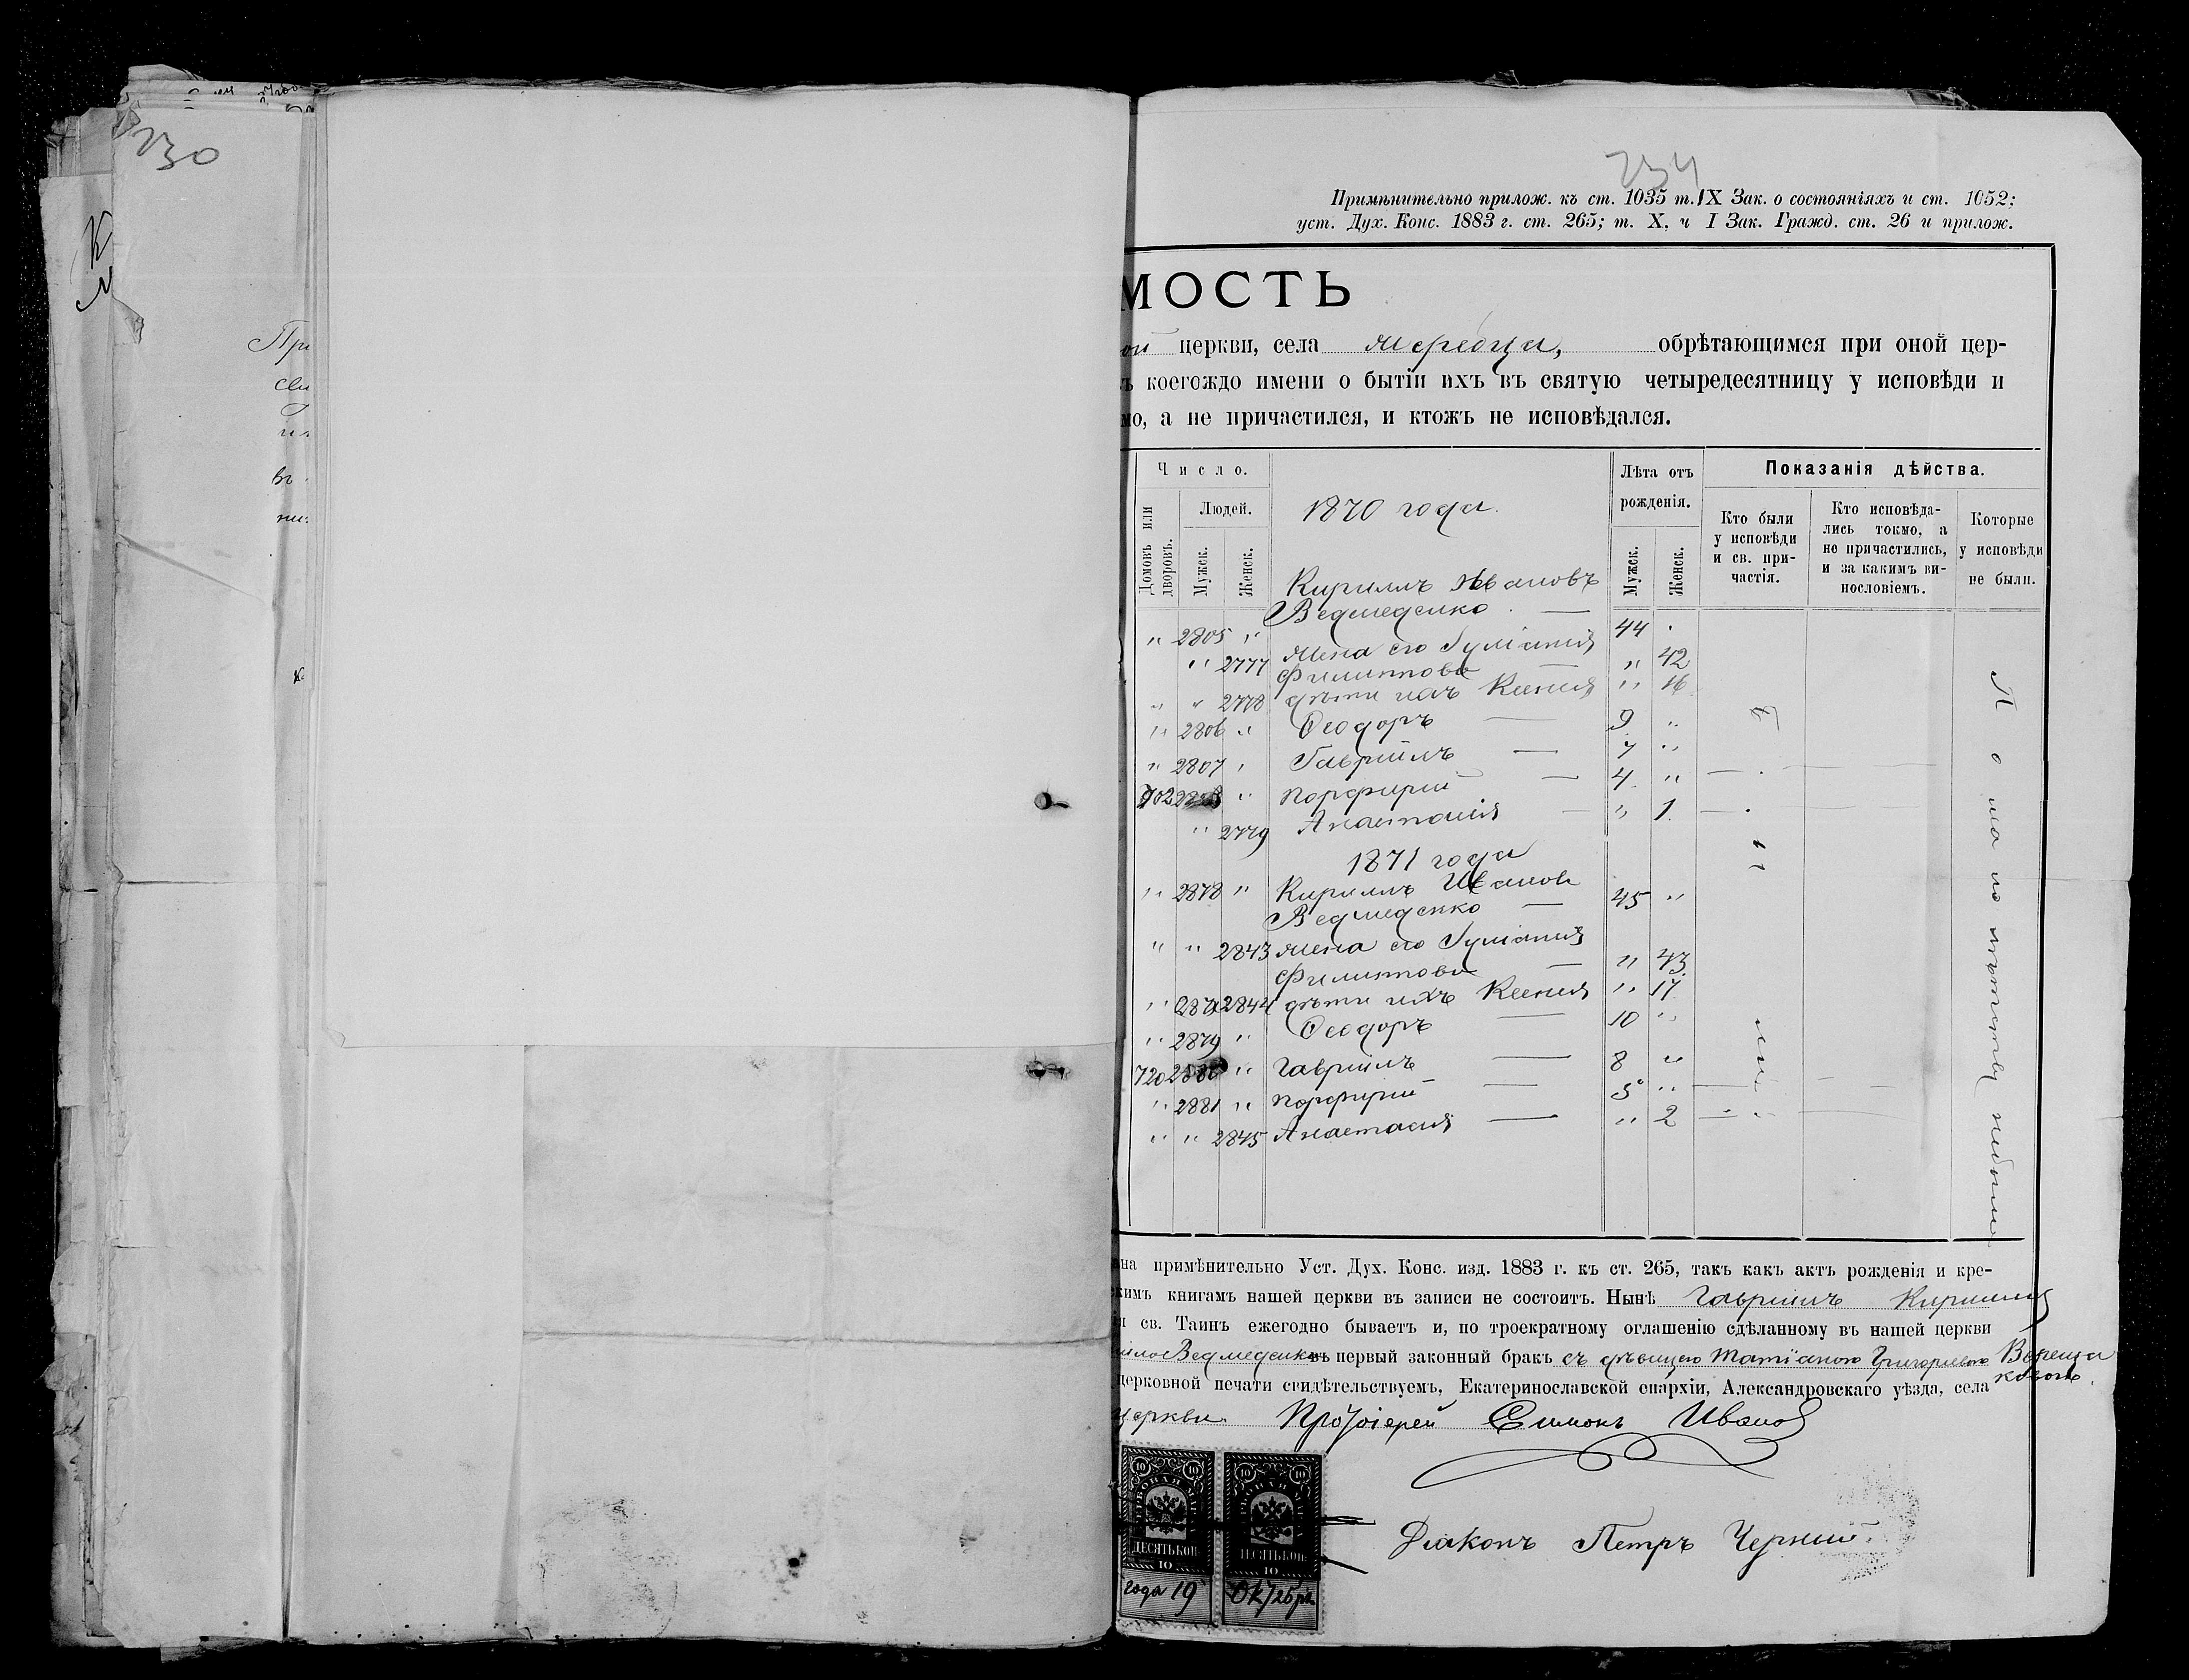 230
234
При
въ
Примѣнительно прилож. къ ст. 1035 т. IX Зак. о состояніяхъ и ст. 1052;
уст. Дух. Конс. 1883 г. ст. 265; т. X, ч I Зак. Гражд. ст. 26 и прилож.
МОСТЬ
ой церкви, села Жеребца, обрѣтающимся при оной цер-
ъ коегождо имени о бытіи ихъ въ святую четыредесятницу у исповѣди и
мо, а не причастился, и ктожъ не исповѣдался.
Число.
Лѣта отъ рожденія.
Показанія дѣйства.
Домовъ или дворовъ.
Людей.
Мужск.
Женск.
1870 года.
Мужск.
Женск.
Кто были у исповѣди и св. при-частія.
Кто исповѣда-лись токмо, а не причастились, и за какимъ ви-нословіемъ.
Которые у исповѣди не были.
Кириллъ Ивановъ
„ 2805 „ Ведмеденко — 44
„ 2777 Жена его Гуліанія
Филиппова „ 42
„ „ 2778 дѣти ихъ Ксенія „ 16
„ 2806 „ Ѳеодоръ — 9 „
„ 2807 „ Гавріилъ — 7 „
702 „ Порфирій — 4 „
„ 2779 Анастасія — „ 1
1871 года
„ 2878 „ Кириллъ Иванов
Ведмеденко — 45 „
„ „ 2843 жена его Гуліанія
Филиппова — „ 43
„ 2844 дѣти ихъ Ксенія „ 17
„ 2879 „ Ѳеодоръ — 10 „
720 2880 „ Гавріилъ — 8 „
„ 2881 „ Порфирій — 5 „
„ „ 2845 Анастасія — „ 2
на примѣнительно Уст. Дух. Конс. изд. 1883 г. къ ст. 265, такъ какъ актъ рожденія и кре-
кимъ книгамъ нашей церкви въ записи не состоитъ. Нынѣ Гавріилъ Кирилловъ
и св. Таинъ ежегодно бываетъ и, по троекратному оглашенію сдѣланному въ нашей церкви
Ведмеденко въ первый законный бракъ съ дѣвицею Татіаною Григоріевою
церковной печати свидѣтельствуемъ, Екатеринославской епархіи, Александровскаго уѣзда, села
церкви Протоіерей Симонъ Ивановъ
10 10
ГЕРБОВАЯ МАРКА
ДЕСЯТЬ КОП.
10
10 10
ГЕРБОВАЯ МАРКА
ДЕСЯТЬ КОП.
10
года 19 Октября
Діаконъ Петръ Черный.